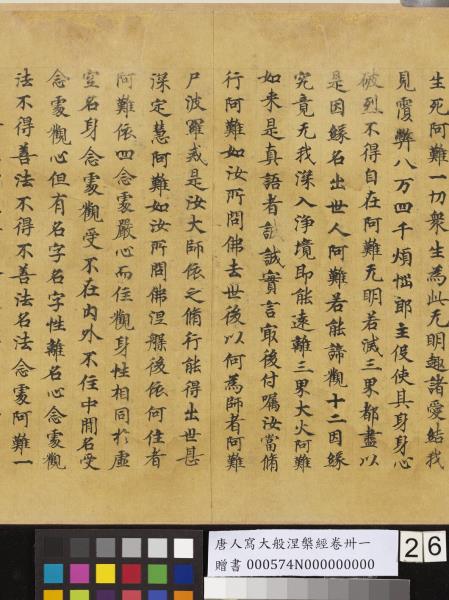 生死阿難一切衆生為此无明趣諸愛結我
見覆弊八万四千煩惱郎主伇使其身身心
破烈不得自在阿難无明若滅三界都盡以
是因緣名出世人阿難若能諦觀十二因緣
究竟无我深入淨境即能遠離三界大火阿難
如来是真語者誠實言㝡後付囑汝當脩
行阿難如汝所問佛去世後以何為師者阿難
尸波羅戒是汝大師依之脩行能得出世甚
深定慧阿難如汝所問佛涅槃後依何住者
阿難依四念處嚴心而住觀身性相同於虛
空名身念處觀受不在內外不住中閒名受
念處觀心但有名字名字性離名心念處觀
法不得善法不得不善法名法念處阿難一
唐人寫大般涅槃經卷卅一
贈書 000574N000000000
26